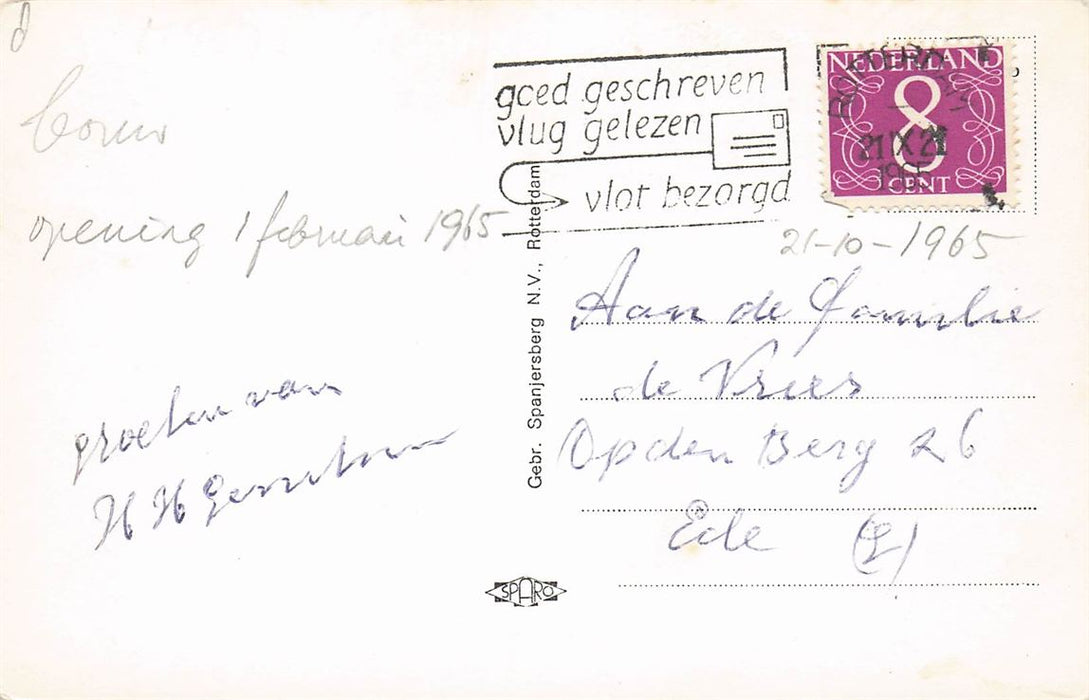 opening 1 februari 1965
groeten van
H H Gerretsen
goed geschreven
vlug gelezen
vlot bezorgd
NEDERLAND
8
CENT
ROTTERDAM
21 IX 21
1965
21-10-1965
Aan de Familie
de Vries
Op den Berg 26
Ede (G)
Gebr. Spanjersberg N.V., Rotterdam
SPARO